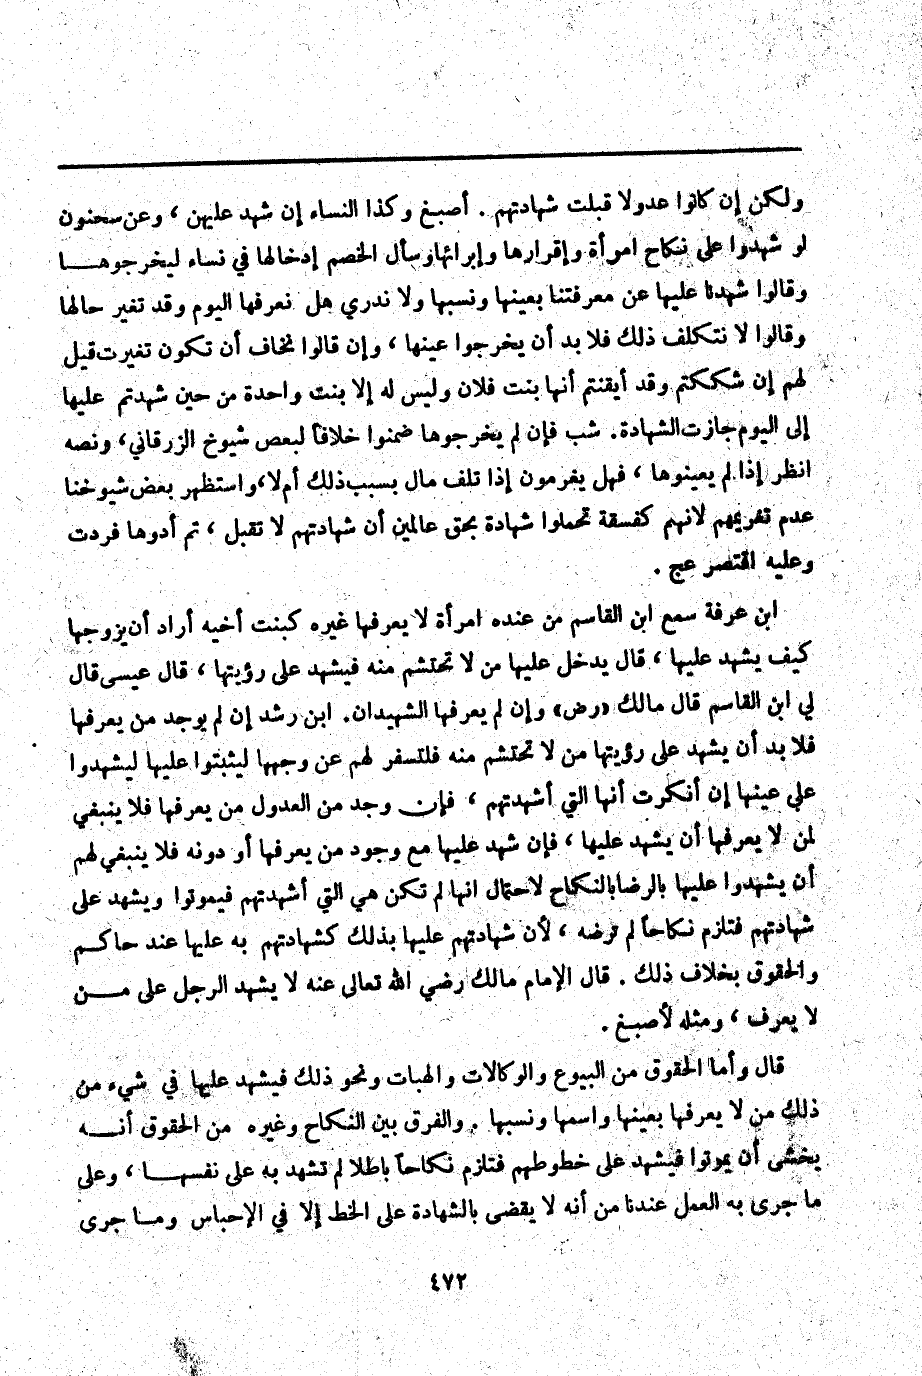 ولكن إن كانوا عدولا قبلت شهادتهم . أصبغ وكذا النساء إن شهد عليهن ، وعن سحنون
لو شهدوا على نكاح امرأة وإقرارها وإبرائها وسأل الخصم إدخالها في نساء ليخرجوهـــا
وقالوا شهدنا عليها عن معرفتنا بعينها ونسبها ولا ندري هل نعرفها اليوم وقد تغير حالها
وقالوا لا نتكلف ذلك فلا بد أن يخرجوا عينها ، وإن قالوا نخاف أن تكون تغيرت قيل
لهم إن شككتم وقد أيقنتم أنها بنت فلان وليس له إلا بنت واحدة من حين شهدتم عليها
إلى اليوم جازت الشهادة. شب فإن لم يخرجوها ضمنوا خلافاً لبعض شيوخ الزرقاني، ونصه
انظر إذا لم يعينوها ، فهل يغرمون إذا تلف مال بسبب ذلك أم لا، واستظهر بعض شيوخنا
عدم تغريمهم لانهم كفسقة تحملوا شهادة بحق عالمين أن شهادتهم لا تقبل ، ثم أدوها فردت
وعليه اقتصر عج .
ابن عرفة سمع ابن القاسم من عنده امرأة لا يعرفها غيره كبنت أخيه أراد أن يزوجها
كيف يشهد عليها ، قال يدخل عليها من لا تحتشم منه فيشهد على رؤيتها ، قال عيسى قال
لي ابن القاسم قال مالك «رض» وإن لم يعرفها الشهيدان. ابن رشد إن لم يوجد من يعرفها
فلا بد أن يشهد على رؤيتها من لا تحتشم منه فلتسفر لهم عن وجهها ليثبتوا عليها ليشهدوا
على عينها إن أنكرت أنها التي أشهدتهم ، فإن وجد من العدول من يعرفها فلا ينبغي
لمن لا يعرفها أن يشهد عليها ، فإن شهد عليها مع وجود من يعرفها أو دونه فلا ينبغي لهم
أن يشهدوا عليها بالرضا بالنكاح لاحتمال انها لم تكن هي التي أشهدتهم فيموتوا ويشهد على
شهادتهم فتلزم نكاحاً لم ترضه ، لأن شهادتهم عليها بذلك كشهادتهم به عليها عند حاكـم
والحقوق بخلاف ذلك . قال الإمام مالك رضي الله تعالى عنه لا يشهد الرجل على مـــن
لا يعرف ، ومثله لأصبـغ .
قال وأما الحقوق من البيوع والوكالات والهبات ونحو ذلك فيشهد عليها في شيء من
ذلك من لا يعرفها بعينها واسمها ونسبها . والفرق بين النكاح وغيره من الحقوق أنـــه
يخشى أن يموتوا فيشهد على خطوطهم فتلزم نكاحاً باطلا لم تشهد به على نفسهـــا ، وعلى
ما جرى به العمل عندنا من أنه لا يقضى بالشهادة على الخط إلا في الإحباس ومـا جرى
٤٧٢